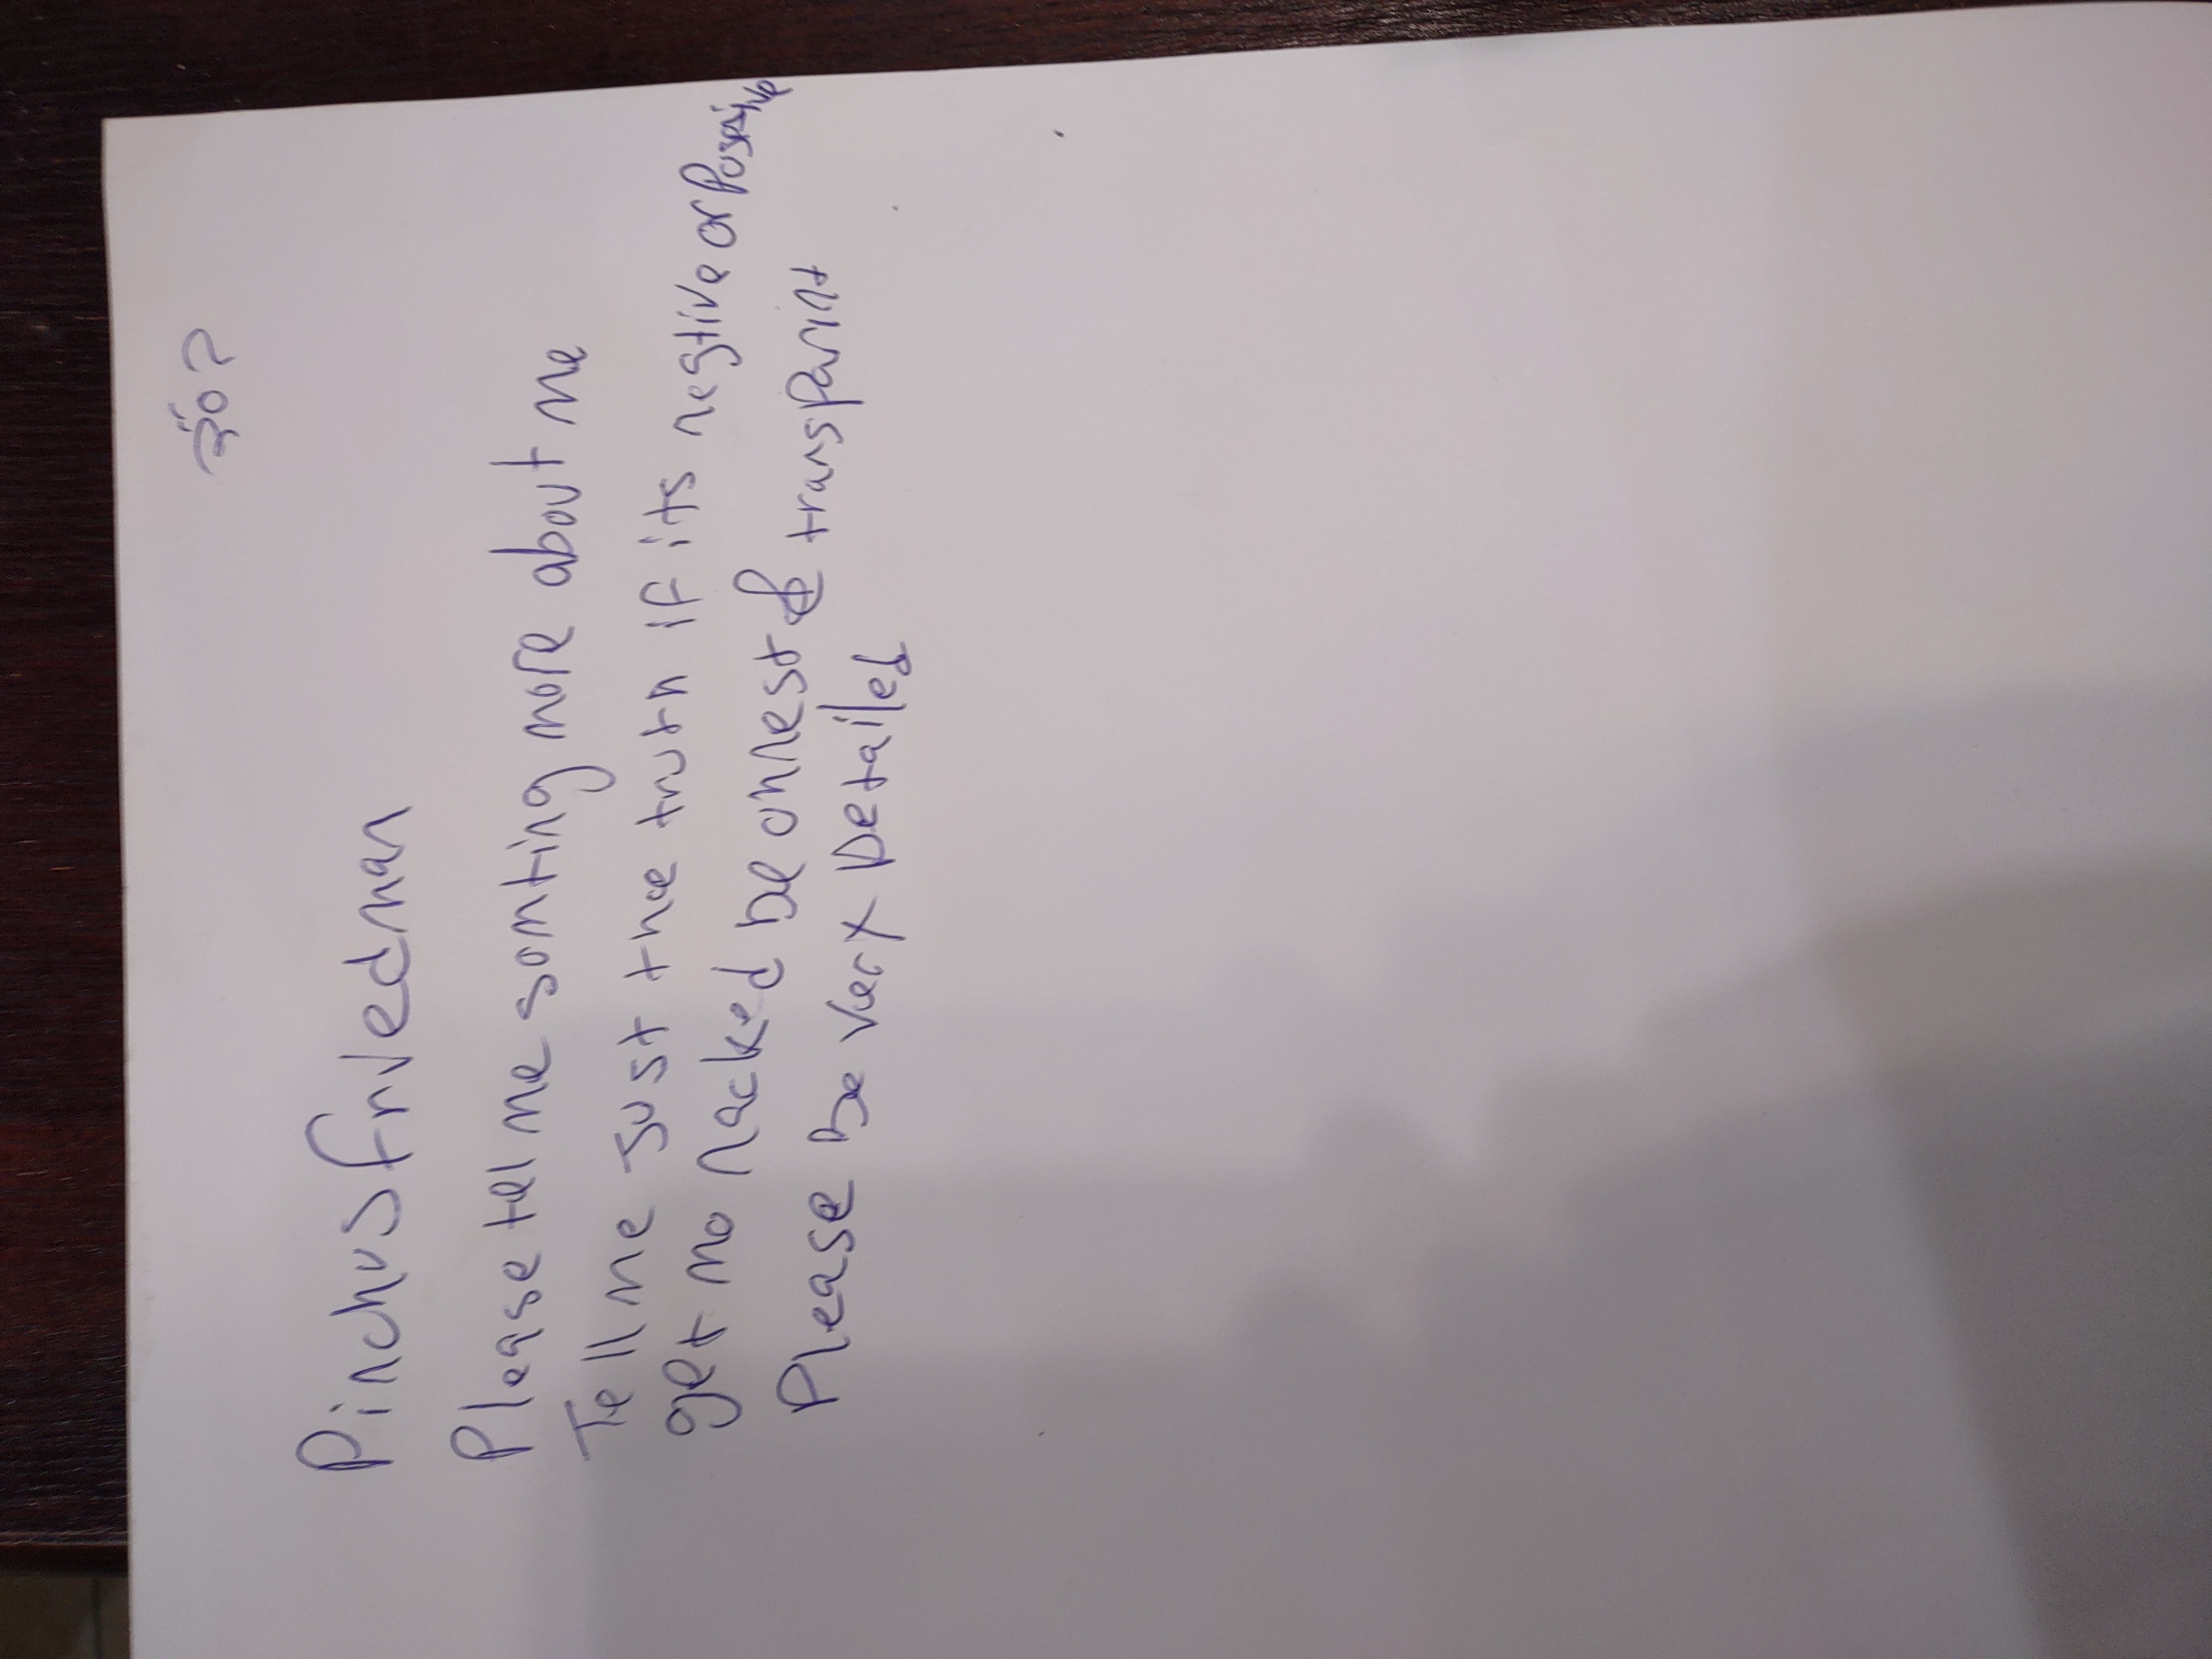 בס"ד
Pinchus friedman
Please tell me somting more about me
Tell me just the truth if its negtive or Positive
get mo nacked be onnest & transParint
Please be very Detailed